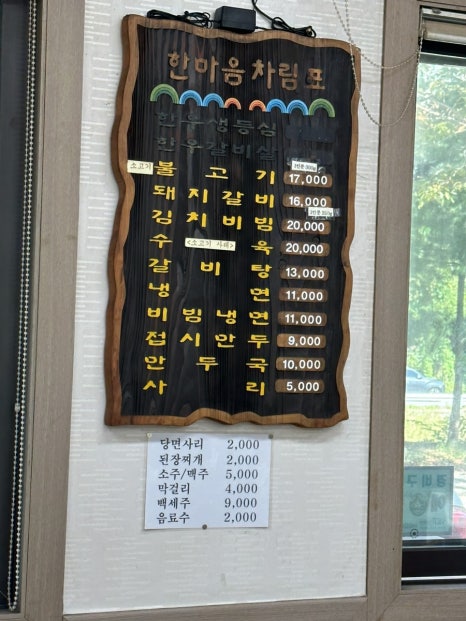 한마음차림표
한우생등심
한우갈비살
소고기 불고기 17,000
돼지갈비 16,000
김치비빔 20,000
수 <소고기 사태> 육 20,000
갈비탕 13,000
냉면 11,000
비빔냉면 11,000
접시만두 9,000
만두국 10,000
사리 5,000
당면사리 2,000
된장찌개 2,000
소주/맥주 5,000
막걸리 4,000
백세주 9,000
음료수 2,000